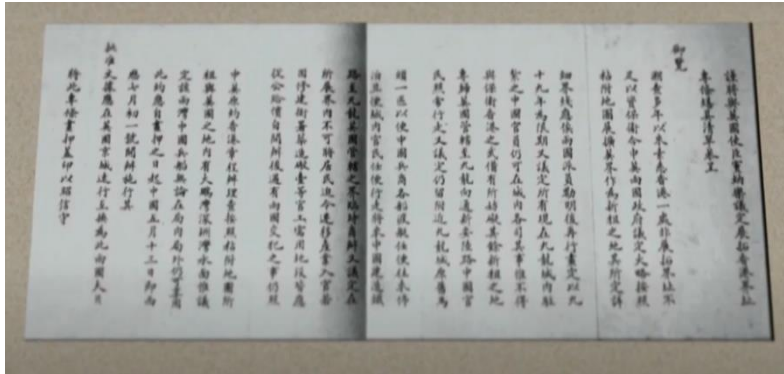 謹將與英國使臣竇納樂議定展拓香港界址
專條繕具清單恭呈
御覽
溯查多年以來素悉香港一處非展拓界址不
足以資保衛今中英兩國政府議定大略按照
粘附地圖展擴英界作為新租之地其所定詳
細界線應俟兩國派員勘明後再行畫定以九
十九年為限期又議定所有現在九龍城內駐
紮之中國官員仍可在城內各司其事惟不得
與保衛香港之武備有所妨礙其餘新租之地
專歸英國管轄至九龍向通新安陸路中國官
民照常行走又議定仍留附近九龍城原舊馬
頭一區以便中國兵商各船渡艇任便往來停
泊且便城內官民任便行走將來中國建造鐵
路至九龍英國管轄之界臨時商辦又議定在
所展界內不可將居民迫令遷移產業入官若
因修建衙署築造礮臺等官工需用地段皆應
從公給價自開辦後遇有兩國交犯之事仍照
中英原約香港章程辦理查按照粘附地圖所
租與英國之地內有大鵬灣深圳灣水面惟議
定該兩灣中國兵船無論在局內局外仍可享用
此約應自畫押之日起中國五月十三日即西
歷七月初一號開辦施行其
批准文據應在英國京城速行互換為此兩國大員
將此專條畫押蓋印以昭信守